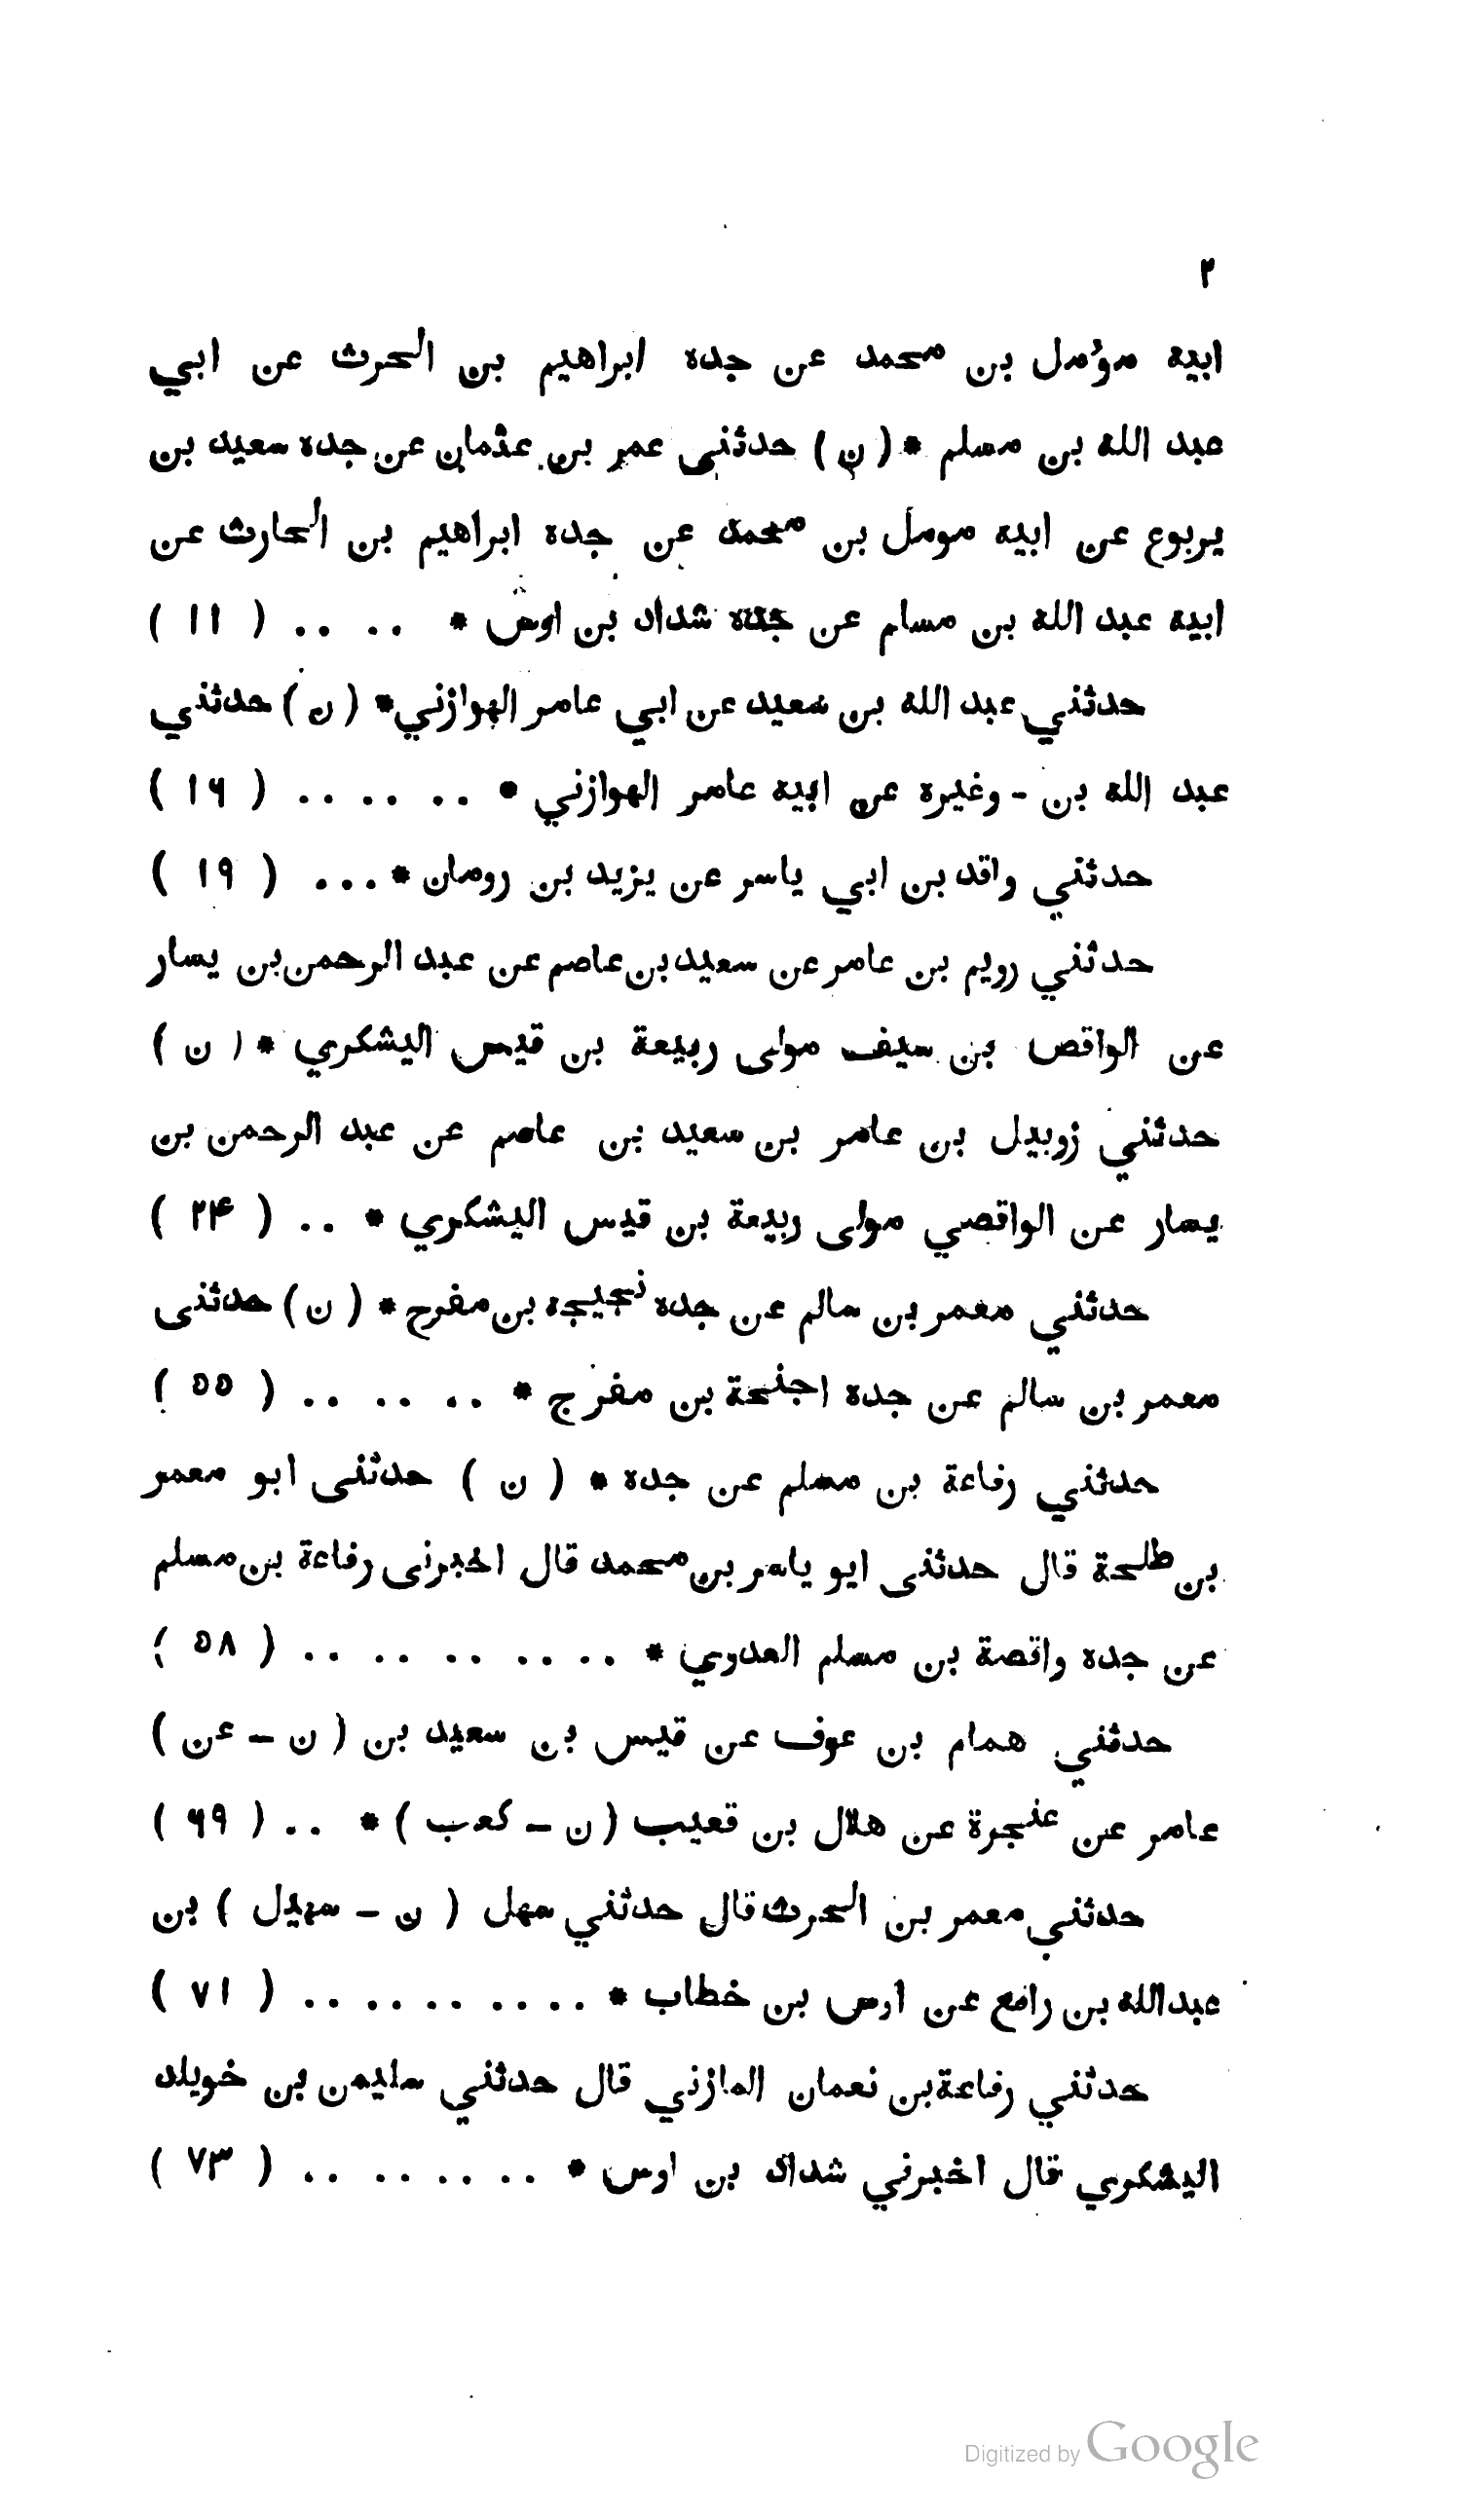 ٢
ابيه مؤمل بن محمد عن جده ابراهيم بن الحرث عن ابي
عبد الله بن مسلم * ( ن ) حدثنى عمر بن عثمان عن جده سعيد بن
يربوع عن ابيه مومل بن محمد عن جده ابراهيم بن الحارث عن
ابيه عبد الله بن مسلم عن جده شداد بن اوس * .. .. ( ١١ )
حدثني عبد الله بن سعيد عن ابي عامر الهوازني * ( ن ) حدثني
عبد الله بن - وغيره عن ابيه عامر الهوازني * .. .. .. ( ١٦ )
حدثني واقد بن ابي ياسر عن يزيد بن رومان * ... ( ١٩ )
حدثني رويم بن عامر عن سعيد بن عاصم عن عبد الرحمن بن يسار
عن الواقص بن سيف مولى ربيعة بن قيس اليشكري * ( ن )
حدثني زوبيل بن عامر بن سعيد بن عاصم عن عبد الرحمن بن
يسار عن الواقصي مولى ربيعة بن قيس اليشكري * .. ( ٢٤ )
حدثني معمر بن سالم عن جده نجيجه بن مفرح * ( ن ) حدثنى
معمر بن سالم عن جده اجنحة بن مفرج * .. .. .. ( ٥٥ )
حدثني رفاعة بن مسلم عن جده * ( ن ) حدثنى ابو معمر
بن طلحة قال حدثنى ابو ياسر بن محمد قال اخبرنى رفاعة بن مسلم
عن جده واقصة بن مسلم العدوي * .. .. .. .. .. ( ٥٨ )
حدثني همام بن عوف عن قيس بن سعيد بن ( ن - عن )
عامر عن عنجرة عن هلال بن قعيب ( ن - كعب ) * .. ( ٦٩ )
حدثني معمر بن الحرث قال حدثني سهل ( ن - سهيل ) بن
عبدالله بن رافع عن اوس بن خطاب * .. .. .. .. .. ( ٧١ )
حدثني رفاعة بن نعمان المازني قال حدثني سليمن بن خويلد
اليشكري قال اخبرني شداد بن اوس * .. .. .. .. ( ٧٣ )
Digitized by Google